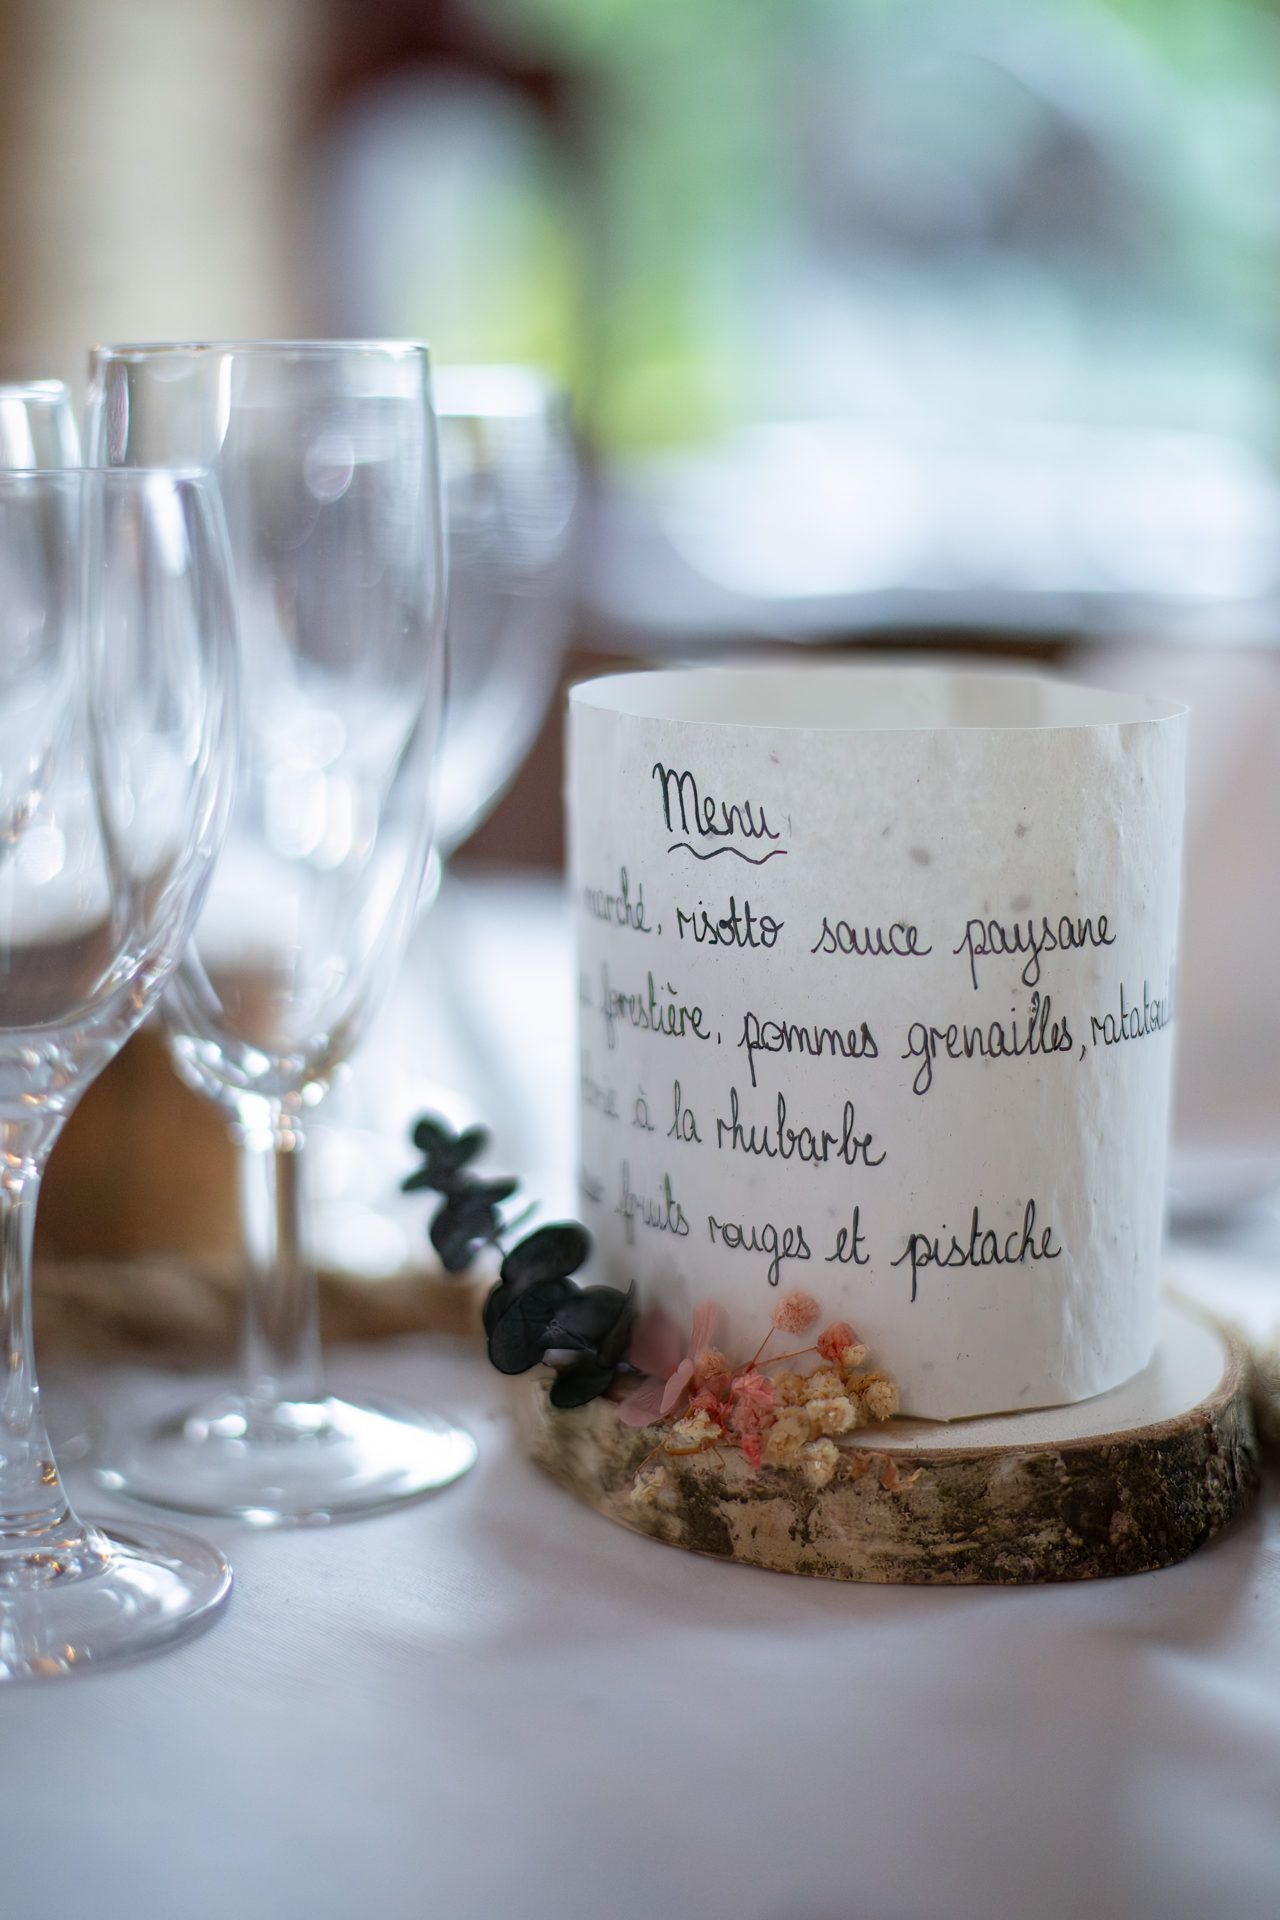 Menu
marché, risotto sauce paysane
forestière, pommes grenailles, ratatoui
à la rhubarbe
fruits rouges et pistache